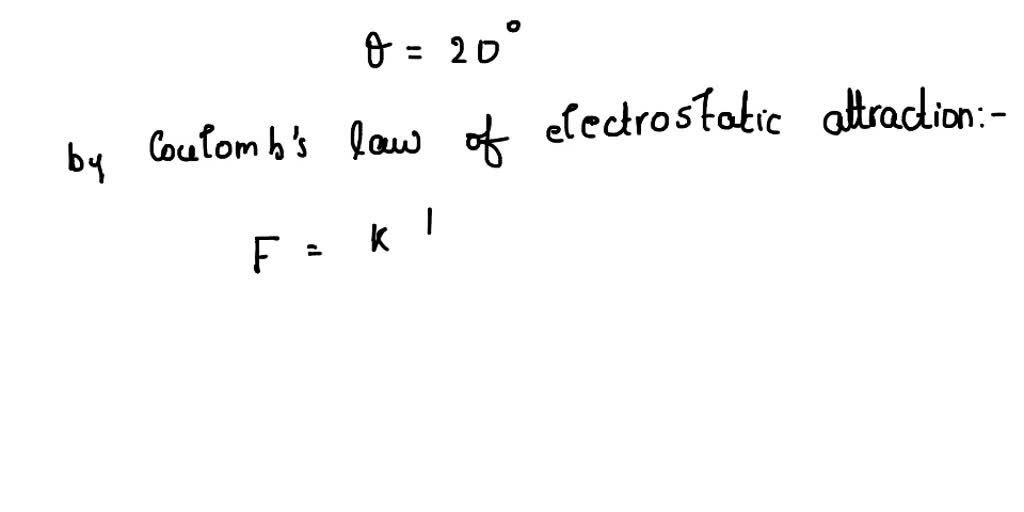 θ = 20°
by Coulomb's law of electrostatic attraction:-
F = K |